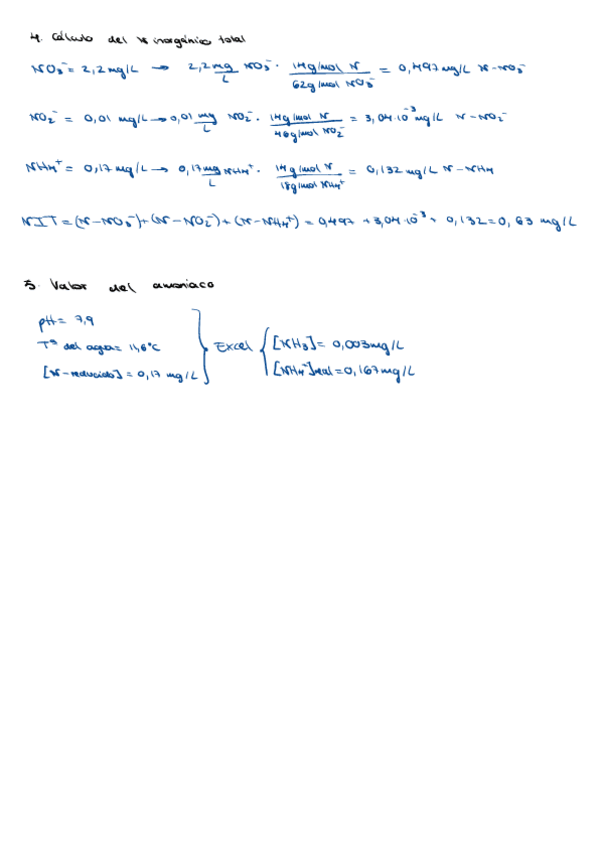 4. Cálculo del N inorgánico total
NO₃⁻ = 2,2 mg/L → 2,2 mg/L NO₃⁻ · 14 g/mol N / 62 g/mol NO₃⁻ = 0,497 mg/L N-NO₃⁻
NO₂⁻ = 0,01 mg/L → 0,01 mg/L NO₂⁻ · 14 g/mol N / 46 g/mol NO₂⁻ = 3,04·10⁻³ mg/L N-NO₂⁻
NH₄⁺ = 0,17 mg/L → 0,17 mg/L NH₄⁺ · 14 g/mol N / 18 g/mol NH₄⁺ = 0,132 mg/L N-NH₄
NIT = (N-NO₃⁻) + (N-NO₂⁻) + (N-NH₄⁺) = 0,497 + 3,04·10⁻³ + 0,132 = 0,63 mg/L
5. Valor del amoniaco
pH = 7,9
Tª del agua = 11,6°C } Excel { [NH₃] = 0,003 mg/L
[N-reducido] = 0,17 mg/L [NH₄⁺]real = 0,167 mg/L